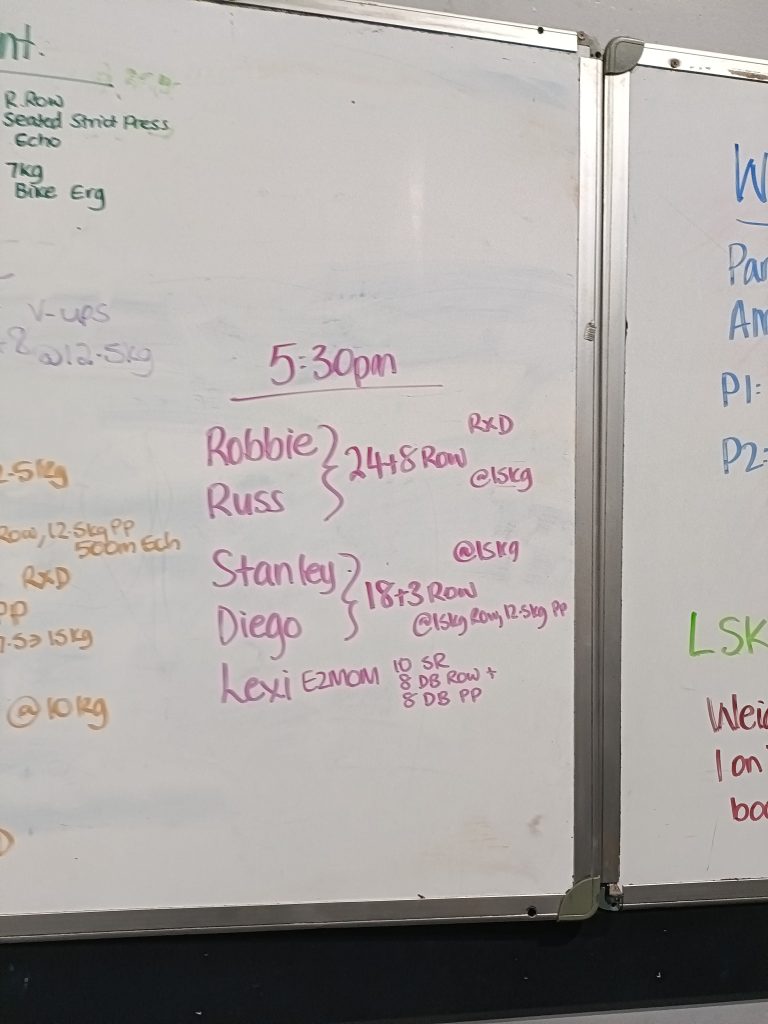 nt.
R.Row
Seated Strict Press
Echo
7kg
Bike Erg
V-ups
+8 @12.5kg
5:30pm
Robbie
Russ
24+8 Row
RxD
@15kg
Stanley
Diego
18+3 Row
@15kg
@15kg Row, 12.5kg PP
Lexi E2MOM
10 SR
8 DB Row +
8 DB PP
2.5kg
Row, 12.5kg PP
500m Ech
RxD
PP
7.5→15kg
@10kg
W
Par
Am
P1:
P2:
LSK
Weig
1 on
boo